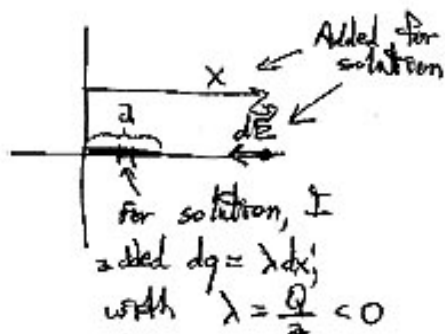 Added for
solution
x
a
dE
For solution, I
added dq = λdx;
with λ = Q/a < 0